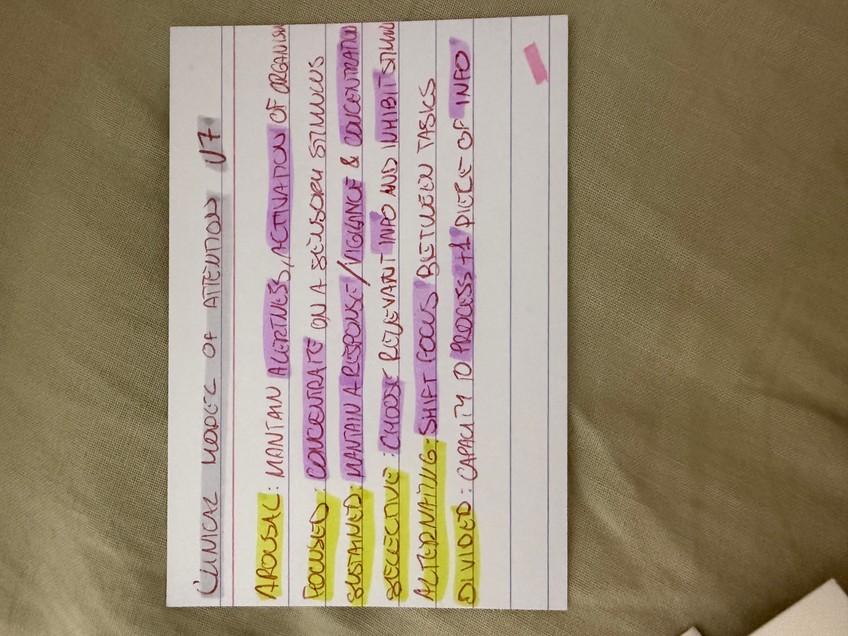 CLINICAL MODEL OF ATTENTION U7
AROUSAL: MANTAIN ALERTNESS, ACTIVATION OF ORGANISM
FOCUSED: CONCENTRATE ON A SENSORY STIMULUS
SUSTAINED: MANTAIN A RESPONSE/VIGILANCE & CONCENTRATION
SELECTIVE: CHOOSE RELEVANT INFO AND INHIBIT STIMULI
ALTERNATING: SHIFT FOCUS BETWEEN TASKS
DIVIDED: CAPACITY TO PROCESS +1 PIECE OF INFO